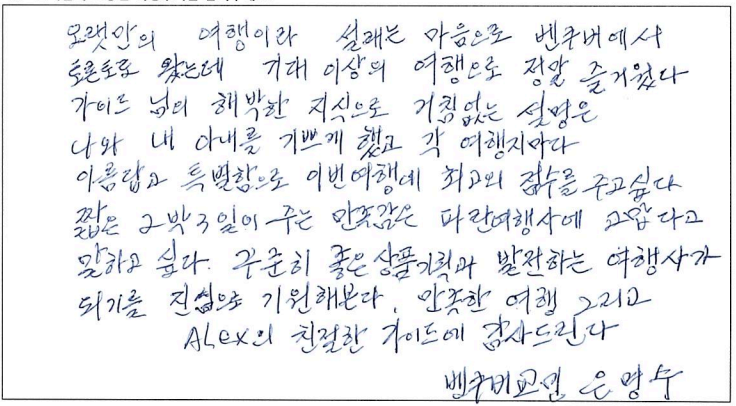 오랫만의 여행이라 설레는 마음으로 벤쿠버에서
토론토로 왔는데 기대 이상의 여행으로 정말 즐거웠다
가이드 님의 해박한 지식으로 거침없는 설명은
나와 내 아내를 기쁘게 했고 각 여행지마다
아름답고 특별함으로 이번여행에 최고의 점수를 주고싶다
짧은 2박3일이 주는 만족감은 파란여행사에 고맙다고
말하고 싶다. 꾸준히 좋은 상품기획과 발전하는 여행사가
되기를 진심으로 기원해본다. 만족한 여행 그리고
ALex의 친절한 가이드에 감사드린다
벤쿠버교민 은명수